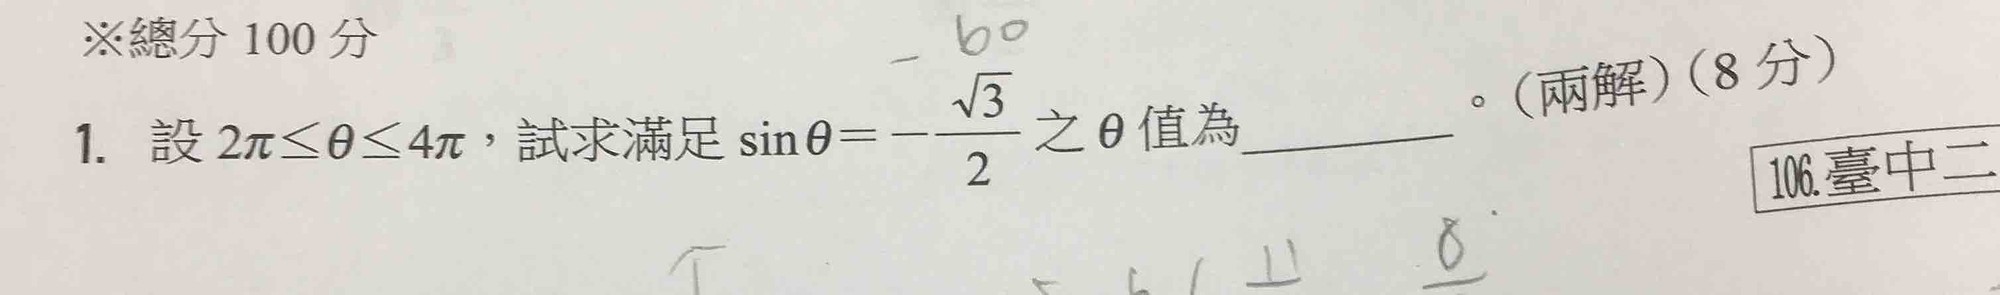 ※總分 100 分
- 60
1. 設 2π≤θ≤4π，試求滿足 sinθ=-√3/2 之 θ 值為________。(兩解)(8 分)
106.臺中二
11 8